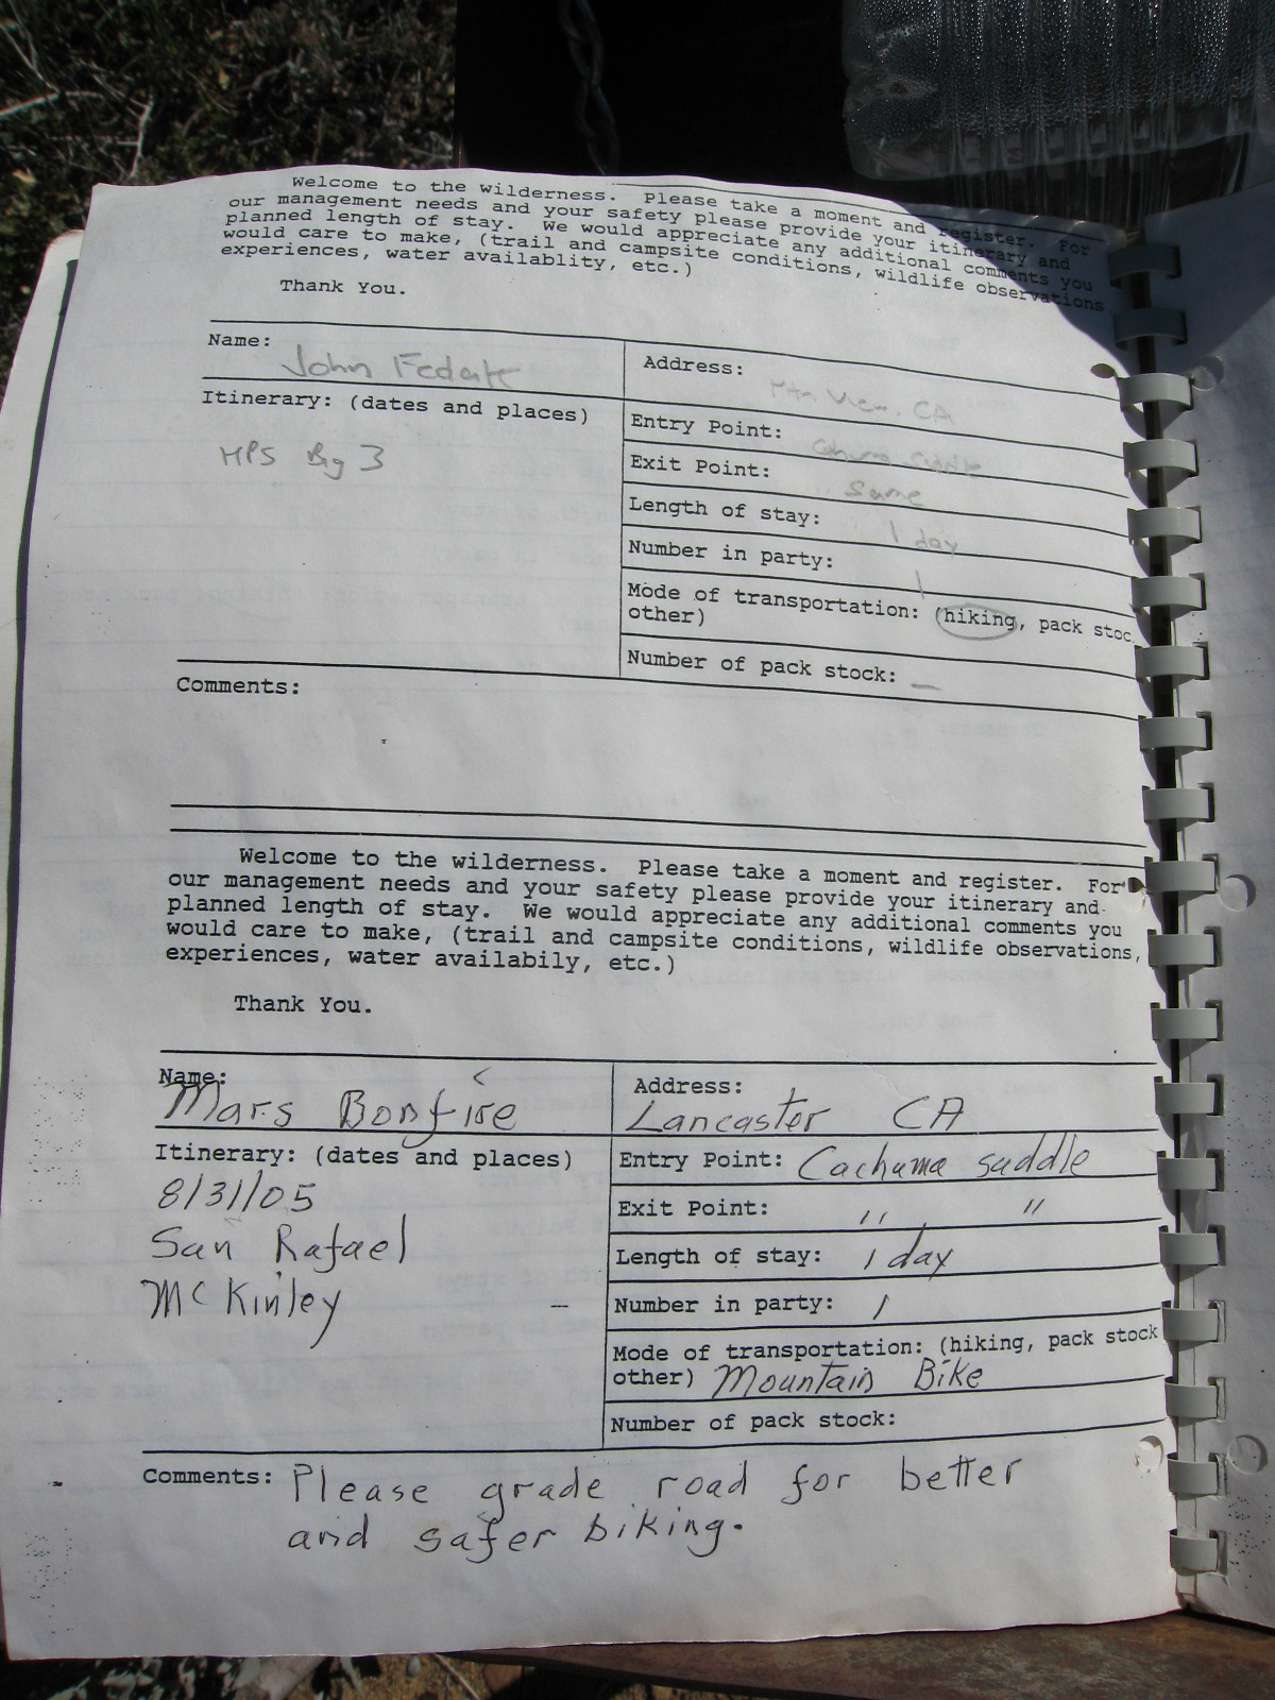 Welcome to the wilderness. Please take a moment and register. For
our management needs and your safety please provide your itinerary and
planned length of stay. We would appreciate any additional comments you
would care to make, (trail and campsite conditions, wildlife observations
experiences, water availablity, etc.)
Thank You.
Name: John
Address: CA
Itinerary: (dates and places)
HPS Big 3
Entry Point:
Exit Point: Same
Length of stay: 1 day
Number in party: 1
Mode of transportation: (hiking, pack stoc
other)
Number of pack stock: —
Comments:
Welcome to the wilderness. Please take a moment and register. For
our management needs and your safety please provide your itinerary and
planned length of stay. We would appreciate any additional comments you
would care to make, (trail and campsite conditions, wildlife observations,
experiences, water availabily, etc.)
Thank You.
Name: Mars Bonfire
Address: Lancaster CA
Itinerary: (dates and places)
8/31/05
San Rafael
McKinley
Entry Point: Cachuma saddle
Exit Point: " "
Length of stay: 1 day
Number in party: 1
Mode of transportation: (hiking, pack stock
other) Mountain Bike
Number of pack stock:
Comments: Please grade road for better
and safer biking.